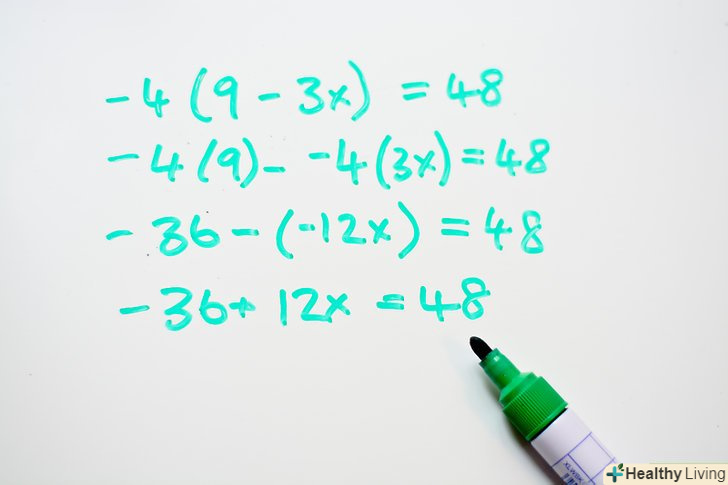 -4(9-3x) = 48
-4(9)- -4(3x)=48
-36-(-12x) = 48
-36+ 12x = 48
XLWBK
Healthy Living